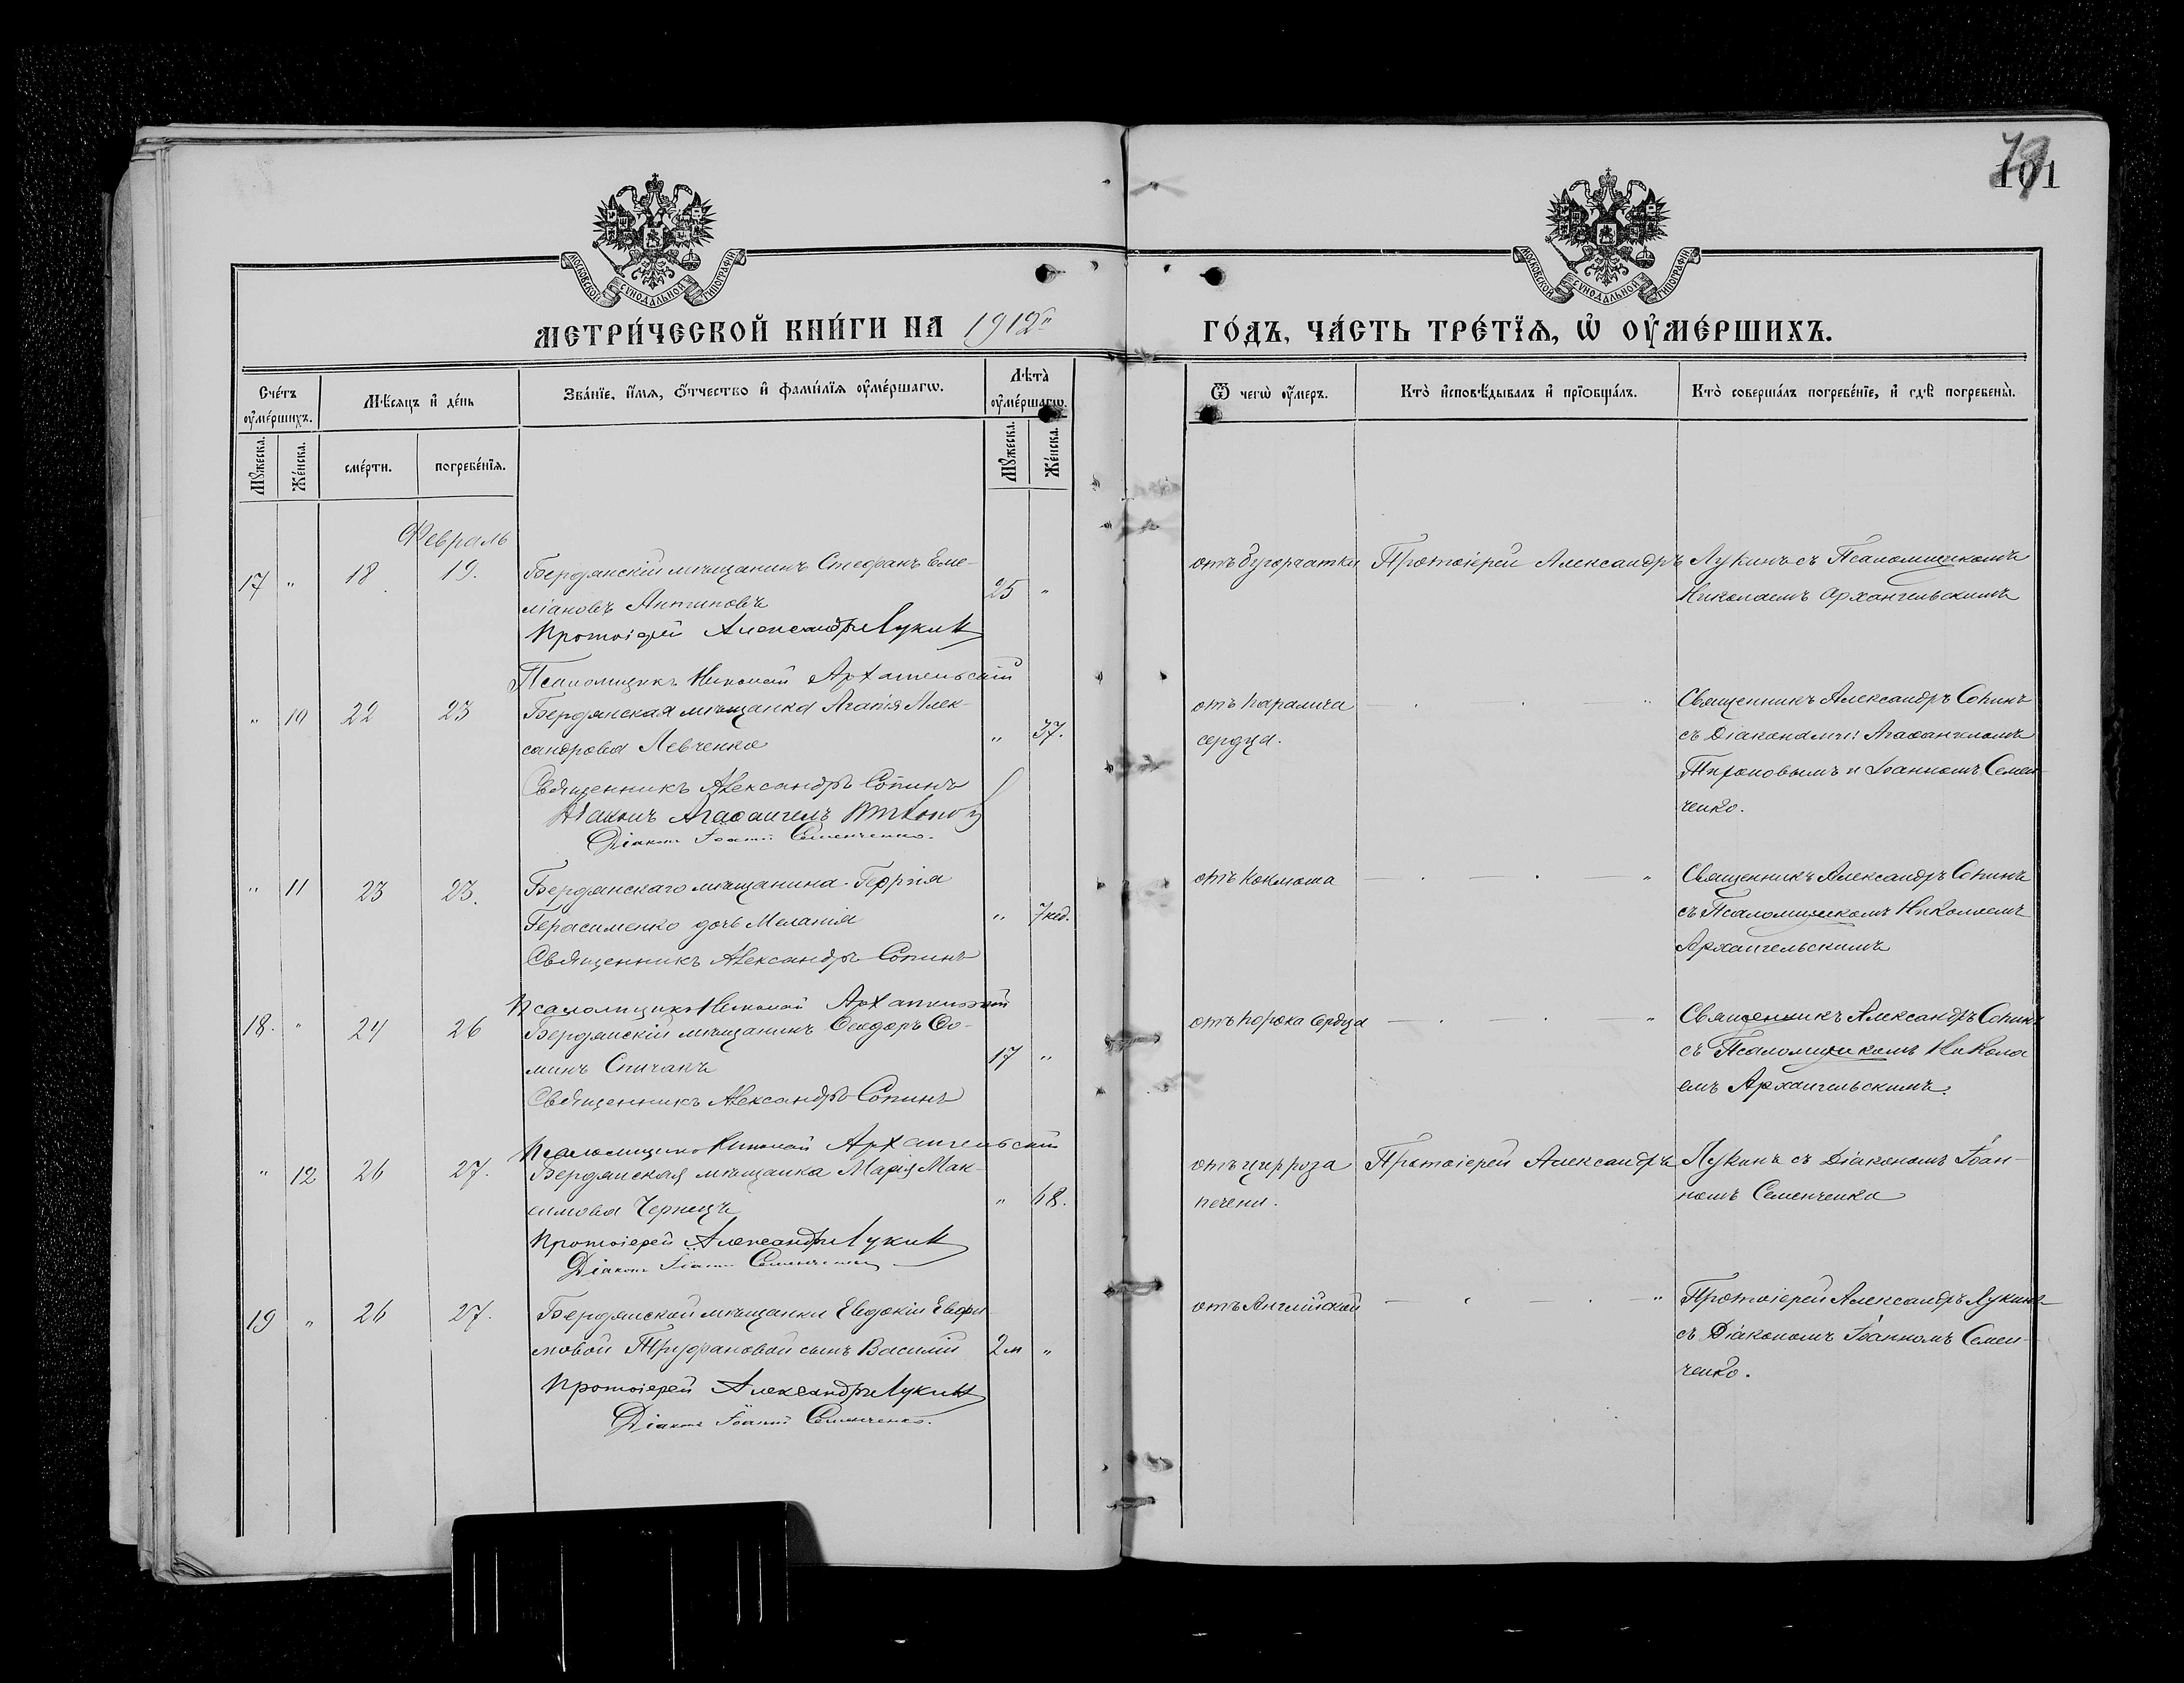 79
101
МОСКОВСКОЙ СѴНОДАЛЬНОЙ ТИПОГРАФІИ
МОСКОВСКОЙ СѴНОДАЛЬНОЙ ТИПОГРАФІИ
МЕТРИ́ЧЕСКОЙ КНИ́ГИ НА 1912
ГО́ДЪ, ЧА́СТЬ ТРЕ́ТЇѦ, Ѡ҆ ОУ҆МЕ́РШИХЪ.
Сче́тъ оу҆ме́ршихъ.
Мѣ́сяцъ и҆ де́нь
Зва́нїе, и҆́мѧ, ѻ҆́тчество и҆ фами́лїѧ оу҆ме́ршагѡ.
Лѣта̀ оу҆ме́ршагѡ.
Ѿ чегѡ̀ оу҆́меръ.
Кто̀ и҆сповѣ́дывалъ и҆ прїѻбща́лъ.
Кто̀ соверша́лъ погребе́нїе, и҆ гдѣ̀ погребены̀.
Мꙋ́жеска.
Же́нска.
сме́рти.
погребе́нїѧ.
Мꙋ́жеска.
Же́нска.
Февраль
17 " 18 19. Бердянскій мѣщанинъ Стефанъ Еме-
ліановъ Антиповъ 25 "
Протоіерей Александръ Лукинъ
отъ бугорчатки Протоіерей Александръ Лукинъ съ Псаломщикомъ
Николаемъ Архангельскимъ
Псаломщикъ Николай Архангельскій
" 10 22 23 Бердянская мѣщанка Агапія Алек-
сандрова Левченко " 37.
Священникъ Александръ Сопинъ
Діаконъ Агаѳангелъ
Діаконъ Іоаннъ Семенченко.
отъ паралича " Священникъ Александръ Сопинъ
сердца. съ Діаконами: Агаѳангеломъ
и Іоанномъ Семен-
ченко.
" 11 23 23. Бердянскаго мѣщанина Георгія
Герасименко дочь Меланія " 7 нед.
Священникъ Александръ Сопинъ
отъ коклюша " Священникъ Александръ Сопинъ
съ Псаломщикомъ Николаемъ
Архангельскимъ
Псаломщикъ Николай Архангельскій
18. " 24 26 Бердянскій мѣщанинъ Ѳеодоръ Ѳо-
минъ Спичакъ 17 "
Священникъ Александръ Сопинъ
отъ порока сердца " Священникъ Александръ Сопинъ
съ Псаломщикомъ Никола
емъ Архангельскимъ.
Псаломщикъ Николай Архангельскій
" 12 26 27. Бердянская мѣщанка Марія Мак-
симова Чернецъ " 48.
Протоіерей Александръ Лукинъ
Діаконъ Іоаннъ Семенченко
отъ цирроза Протоіерей Александръ Лукинъ съ Діакономъ Іоан-
печени. номъ Семенченко
19 " 26 27. Бердянской мѣщанки Евдокіи Евфи-
мовой Труфановой сынъ Василій 2 м "
Протоіерей Александръ Лукинъ
Діаконъ Іоаннъ Семенченко.
отъ Англійской " Протоіерей Александръ Лукинъ
съ Діакономъ Іоанномъ Семен-
ченко.